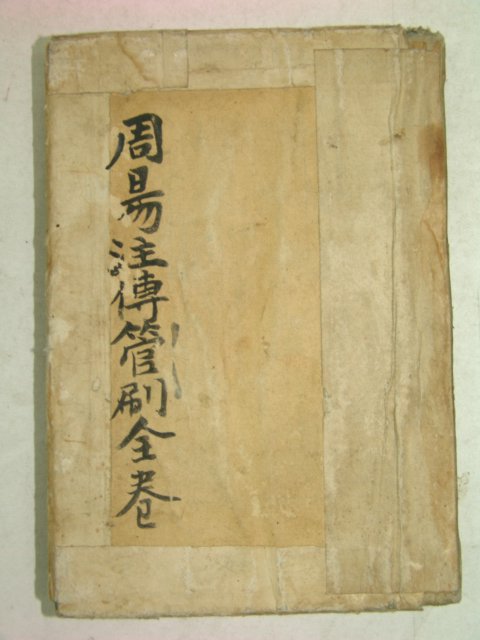 周易注傳管刷全卷